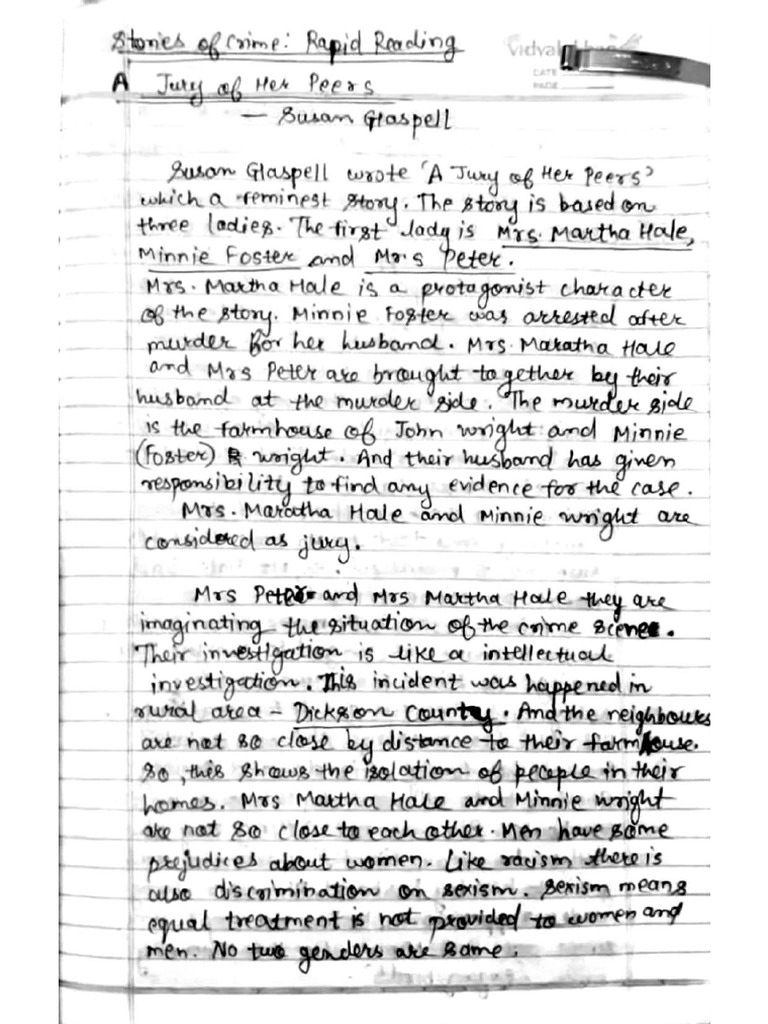 Stories of Crime: Rapid Reading
DATE
PAGE
A Jury of Her Peers
— Susan Glaspell
Susan Glaspell wrote 'A Jury of Her Peers'
which a feminest story. The story is based on
three ladies. The first lady is Mrs. Martha Hale,
Minnie Foster and Mrs Peter.
Mrs. Martha Hale is a protagonist character
of the story. Minnie Foster was arrested after
murder for her husband. Mrs. Maratha Hale
and Mrs Peter are brought together by their
husband at the murder side. The murder side
is the farmhouse of John wright and Minnie
(Foster) wright. And their husband has given
responsibility to find any evidence for the case.
Mrs. Maratha Hale and Minnie wright are
considered as jury.
Mrs Peter and Mrs Martha Hale they are
imaginating the situation of the crime scene.
Their investigation is like a intellectual
investigation. This incident was happened in
rural area - Dickson County. And the neighbours
are not so close by distance to their farmhouse.
So, this shows the isolation of people in their
homes. Mrs Martha Hale and Minnie wright
are not so close to each other. Men have some
prejudices about women. Like racism there is
also discrimination on sexism. Sexism means
equal treatment is not provided to women and
men. No two genders are same.